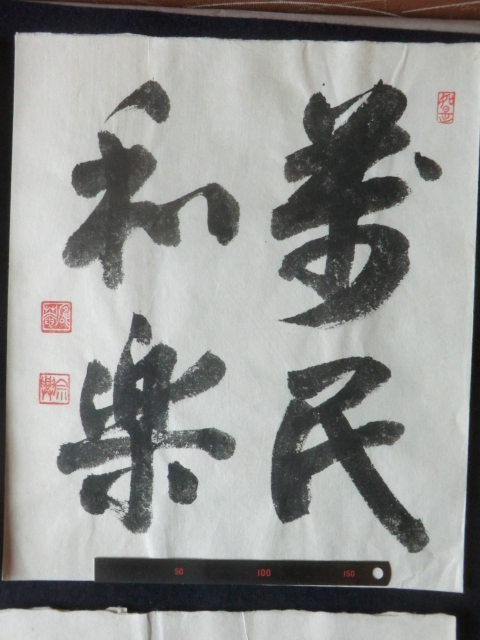 萬民
和樂
如是
50 100 150